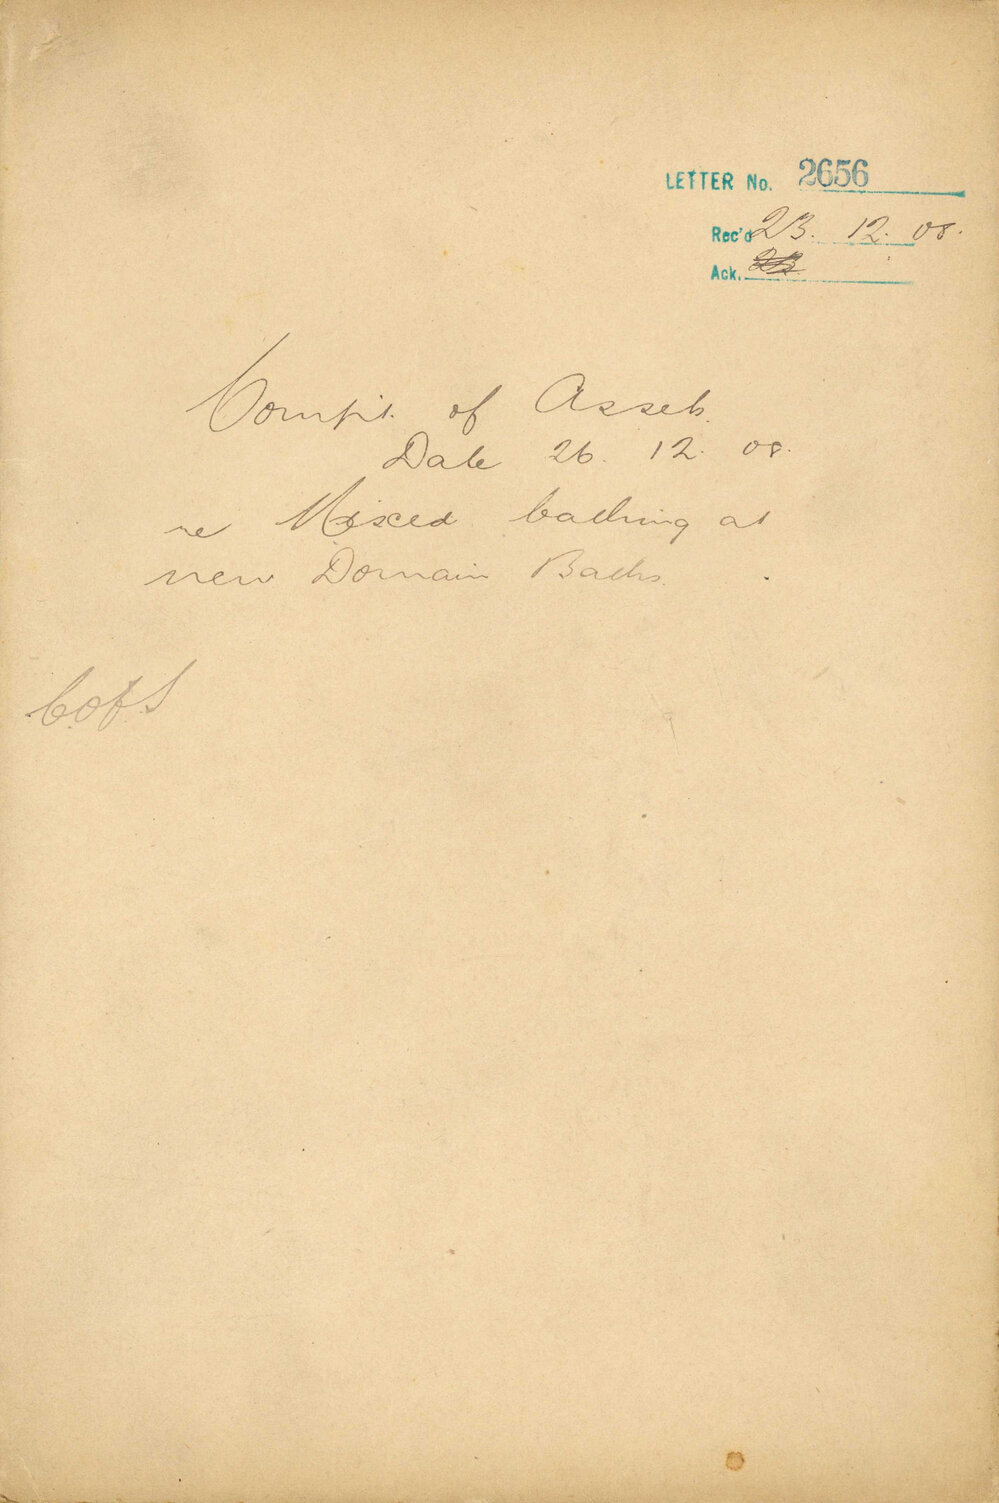 LETTER No. 2656
Rec'd 23. 12. 08.
Ack.
Compt. of Assets.
Date 26. 12. 08.
re Mixed bathing at
new Domain Baths.